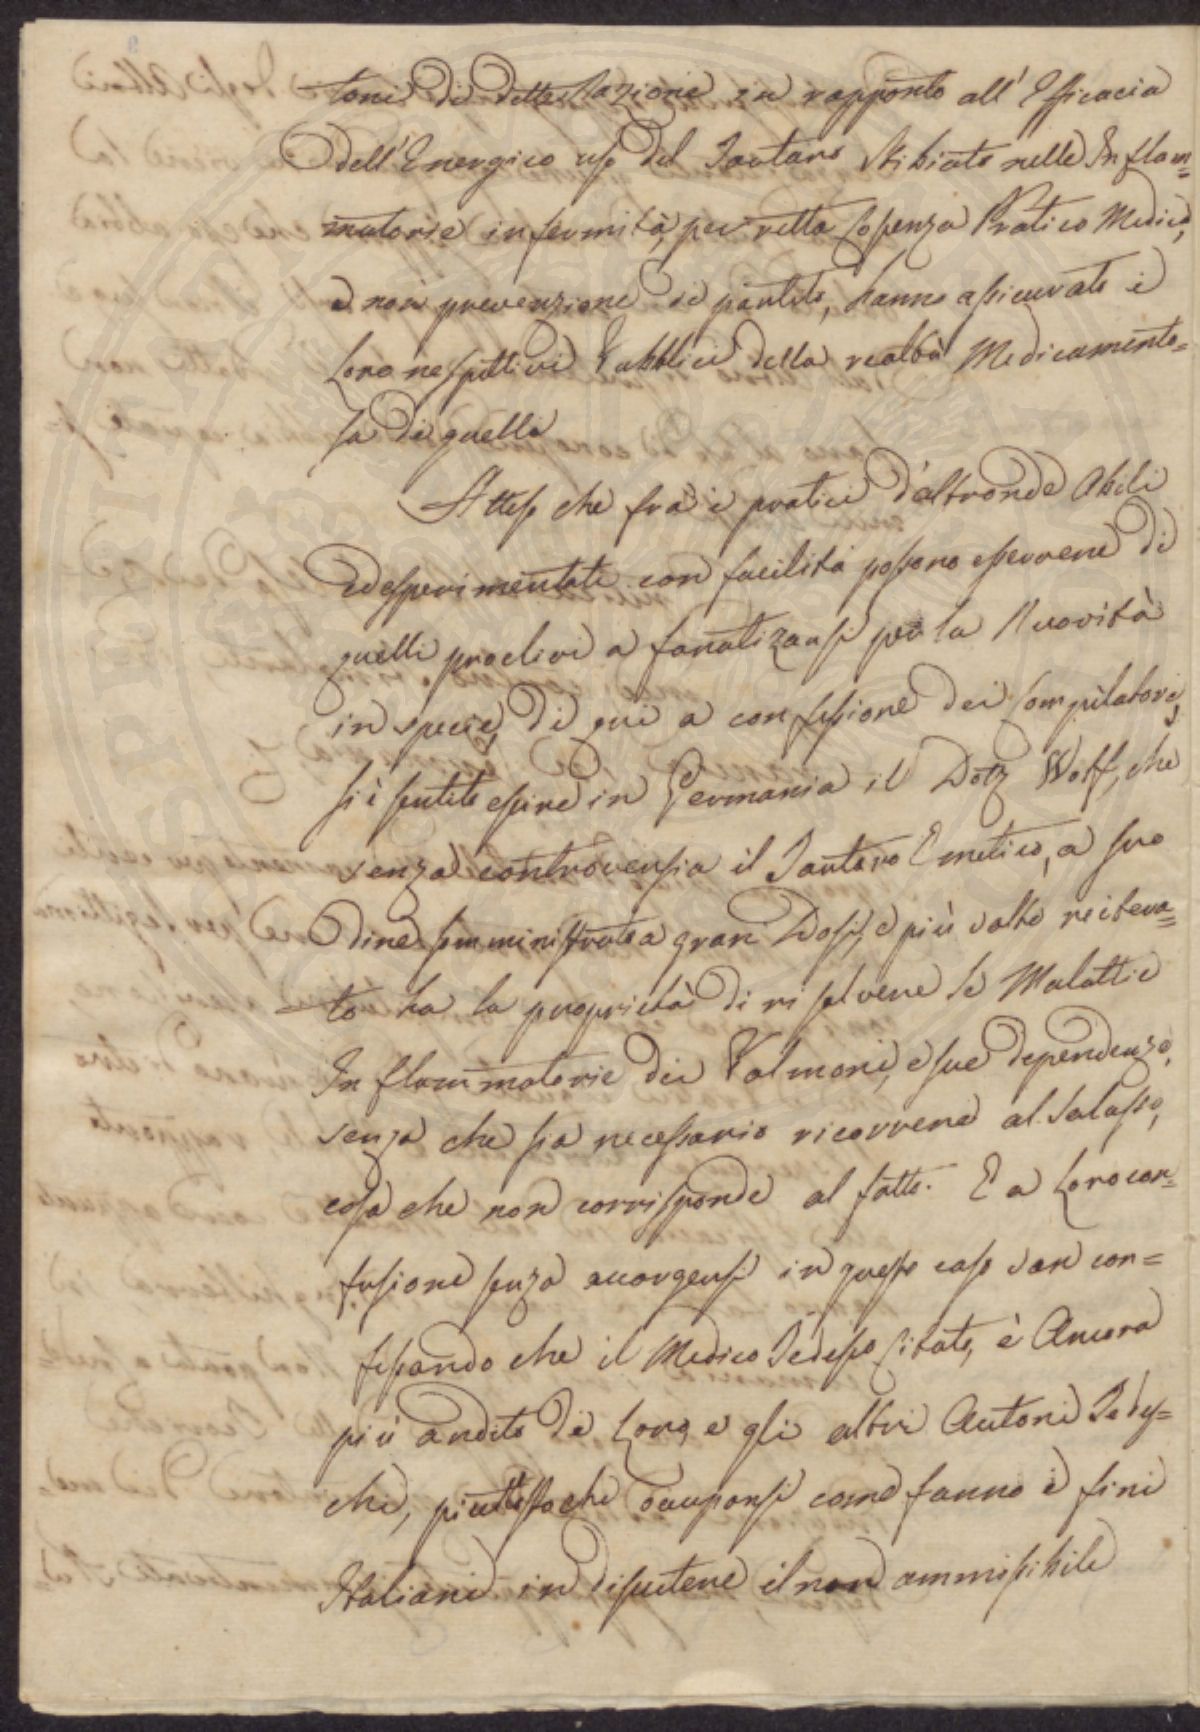 tori di dette Stazione in rapporto all'Efficacia
dell'Energico uso del Tartaro Stibiato nelle Inflam=
matorie infermità, per retta Sapenza Pratico Medica,
e non prevenzione di partito, hanno assicurato i
Loro respettivi Pubblici della realtà Medicamento=
sa di quello
Atteso che fra i pratici d'altronde Abili
ed esperimentati con facilità possono esservene di
quelli proclivi a fanatizzarsi per la Nuovità
in specie, di qui a confessione dei Compilatori,
si è sentito essire in Germania il Dotr Wolff, che
senza controversia il Tartaro Emetico, a suo
dire somministrato a gran Dosi, e più volte reitera=
to ha la proprietà di risolvere le Malattie
Inflammatorie dei Polmoni, e sue dependenze,
senza che sia necessario ricorrere al Salasso,
cosa che non corrisponde al fatto. E a Loro con=
fusione senza accorgersi in questo caso van con=
fessando che il Medico Tedesco Citato, è Ancora
più ardito di Loro, e gli altri Autori Tedes=
chi, piuttosto che occuparsi come fanno i fini
Italiani in discutere il non ammissibile